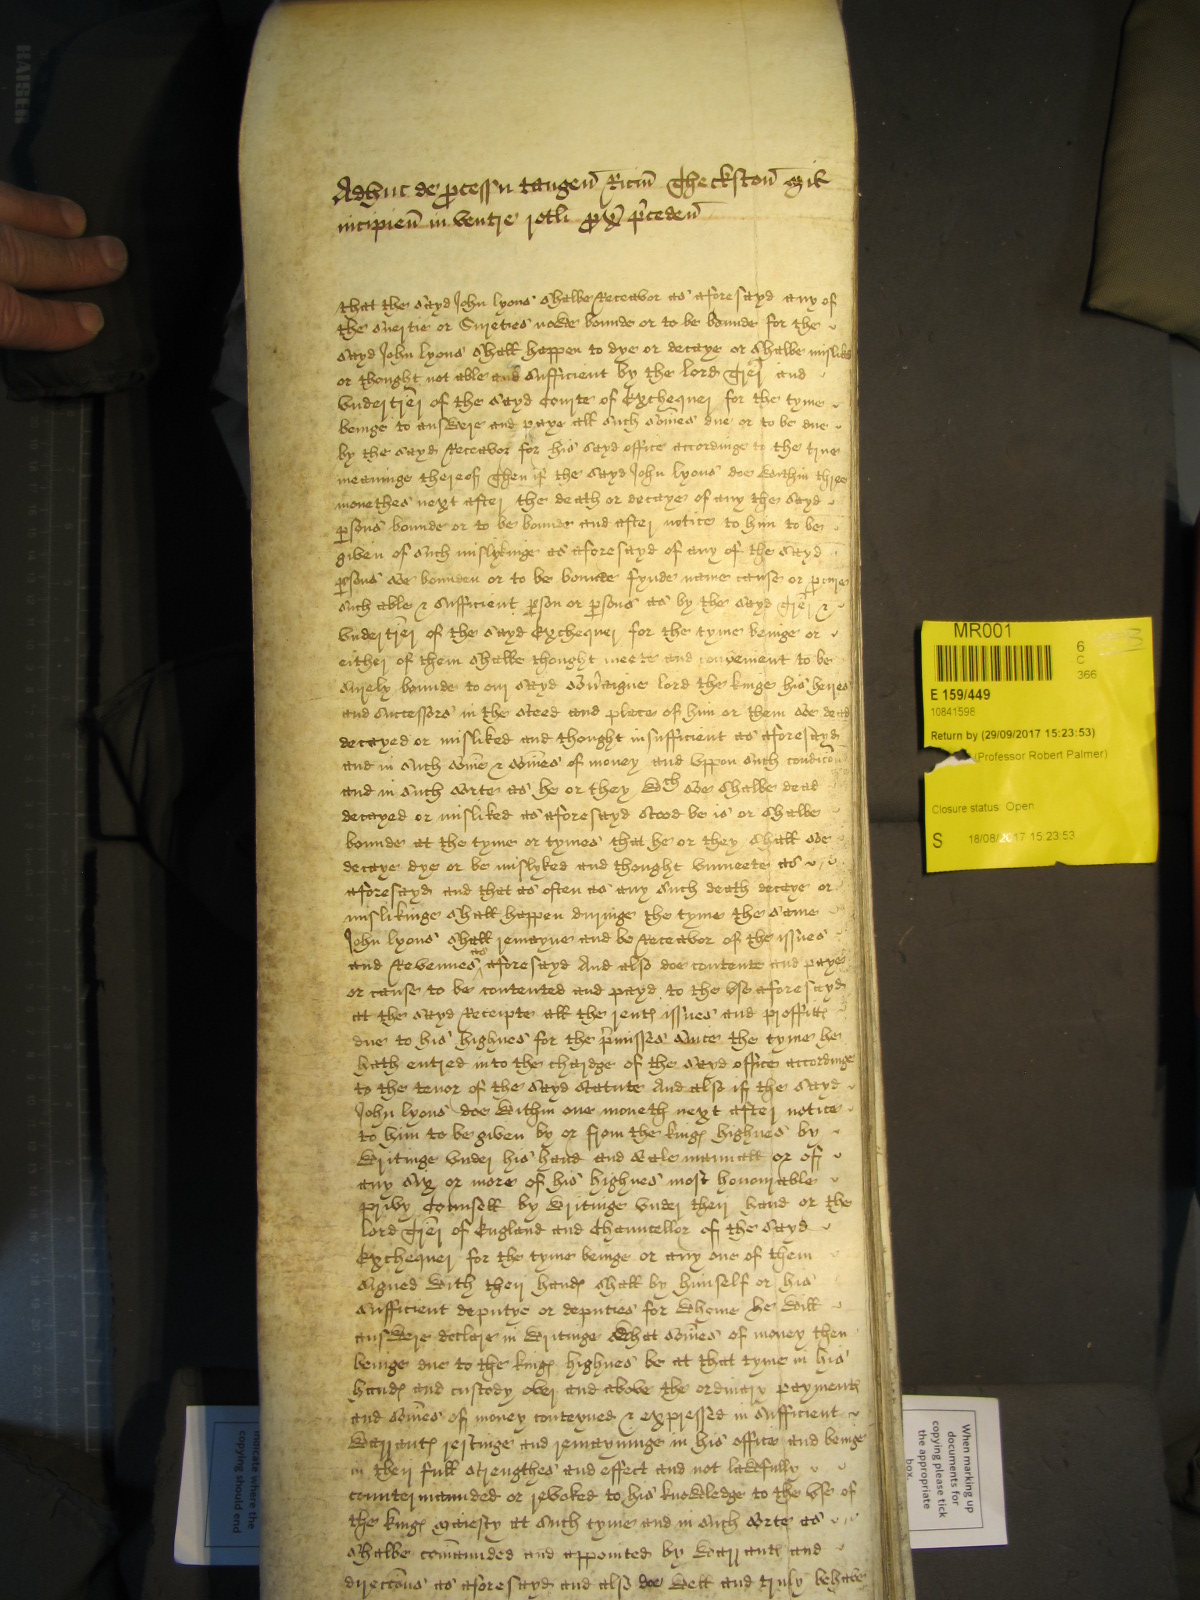 Adhuc de pcessu tangen Ricm Theckston Mil
incipien in ventre rotli px pceden
that the sayd John Lyons shalbe Receavor as aforesayd any of
the suertie or Sureties nowe bounde or to be bounde for the
sayd John Lyons shall happen to dye or decaye or shalbe mislike
or thought not able and sufficient by the Lord Trer and
Undertrer of the sayd Courte of Exchequer for the tyme
beinge to answere and paye all such somes due or to be due
by the sayd Receavor for his sayd office accordinge to the true
meaninge thereof Then if the sayd John Lyons doe within three
monethes next after the death or decaye of any the sayd
psons bounde or to be bounde and after notice to him to be
given of such mislykinge as aforesayd of any of the sayd
psons soe bounden or to be bounde fynde name cause or pcure
such able & sufficient pson or psons as by the sayd Trer &
Undertrer of the sayd Exchequer for the tyme beinge or
either of them shalbe thought meete and convenient to be
surely bounde to our sayd Sovraigne Lord the Kinge his heires
and successors in the steed and place of him or them soe dead
decayed or misliked and thought insufficient as aforesayd
and in such some & somes of money and uppon such condicon
and in such sorte as he or they wch soe shalbe dead
decayed or misliked as aforesayd stood be is or shalbe
bounde at the tyme or tymes that he or they shall soe
decaye dye or be mislyked and thought unmeete as
aforesayd and that as often as any such death decaye or
mislikinge shall happen duringe the tyme the same
John Lyons shall remayne and be Receavor of the issues
and Revenues as aforesayd And also doe contente and paye
or cause to be contented and payd to the use aforesayd
at the sayd Receipte all the rents issues and proffitts
due to his highnes for the pmisses since the tyme he
hath entred into the chardge of the sayd office accordinge
to the tenor of the sayd statute And also if the sayd
John Lyons doe within one moneth next after notice
to him to be given by or from the kings highnes by
writinge under his hand and seale manuall or of
any six or more of his highnes most honorable
privy Counsell by writinge under their hand or the
Lord Trer of England and Chauncellor of the sayd
Exchequer for the tyme beinge or any one of them
signed with their hands shall by himself or his
sufficient deputye or deputies for whome he will
answere declare in writinge what somes of money then
beinge due to the kings highnes be at that tyme in his
hands and custody over and above the ordinary payments
and somes of money conteyned & expressed in sufficient
warrants restinge and remayninge in his office and beinge
in their full strengthes and effect and not lawfully
countermaunded or revoked to his knowledge to the use of
the kings Maiesty at such tyme and in such sorte as
shalbe comaunded and appointed by warrants and
direccons as aforesayd and also doe well and truly behave
MR001
6
C
366
E 159/449
10841598
Return by (29/09/2017 15:23:53)
(Professor Robert Palmer)
Closure status: Open
S 18/08/2017 15:23:53
When marking up
documents for
copying please tick
the appropriate
box.
indicate where the
copying should end
HAISER